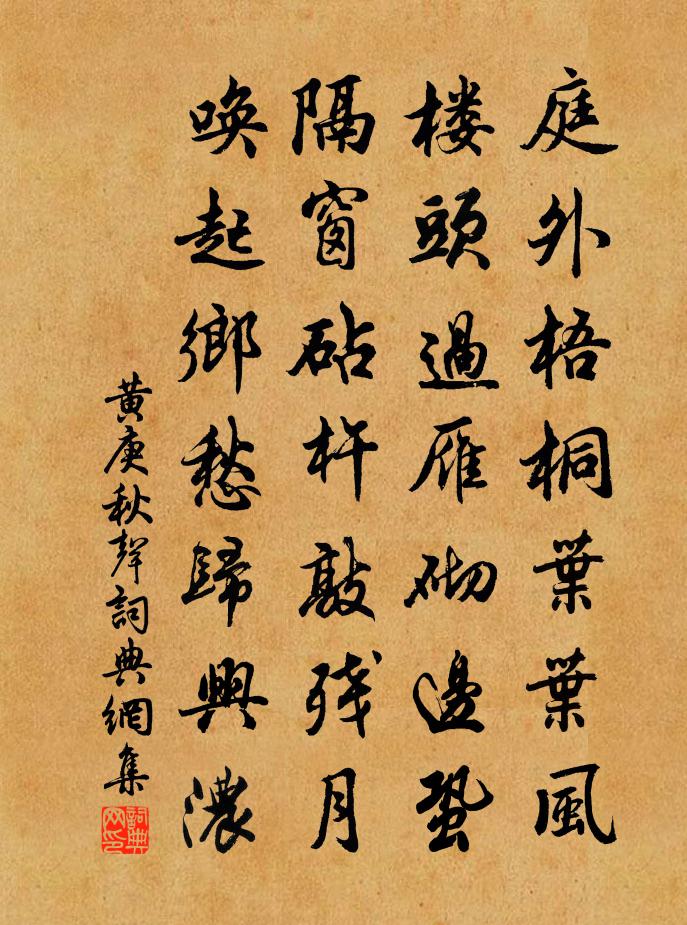 庭外梧桐葉葉風
楼頭過雁砌邊蛩
隔窗砧杵敲残月
喚起鄉愁歸興濃
黄庚秋聲詞典網集
詞典网印